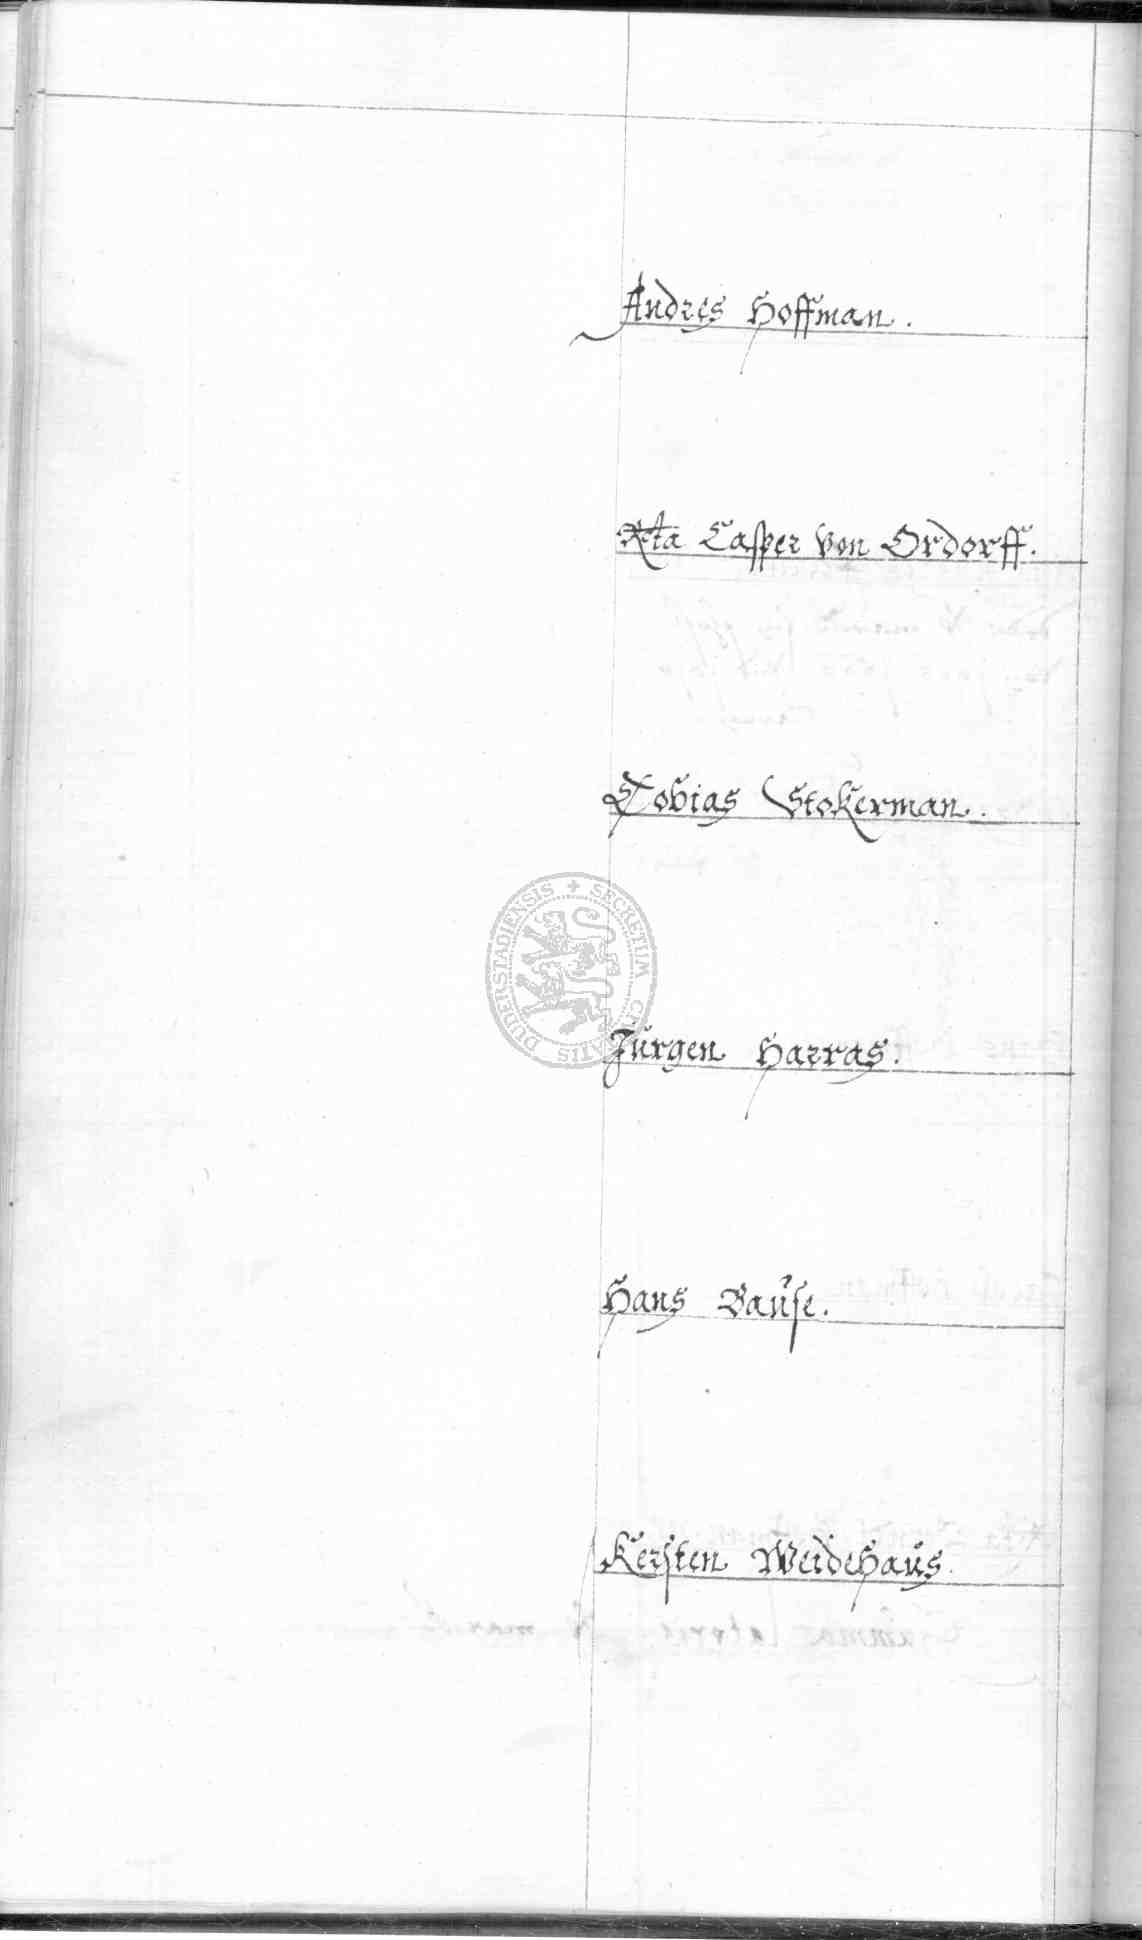 Andres Hoffman.
Rta Casper von Ordorff.
Tobias Stokerman.
DUDERSTADIENSIS + SECRETUM CIVITATIS
Jürgen Harras.
Hans Bause.
Kersten Weidehaus.